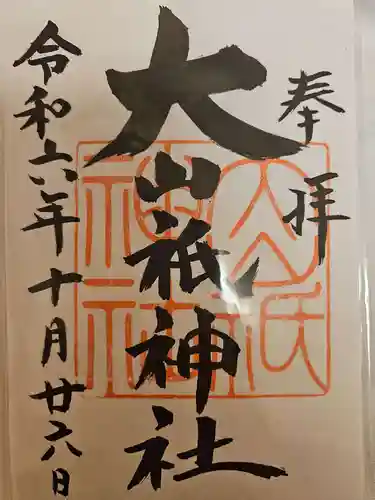 奉拝
大山祇神社
令和六年十月廿六日
大山祇神社